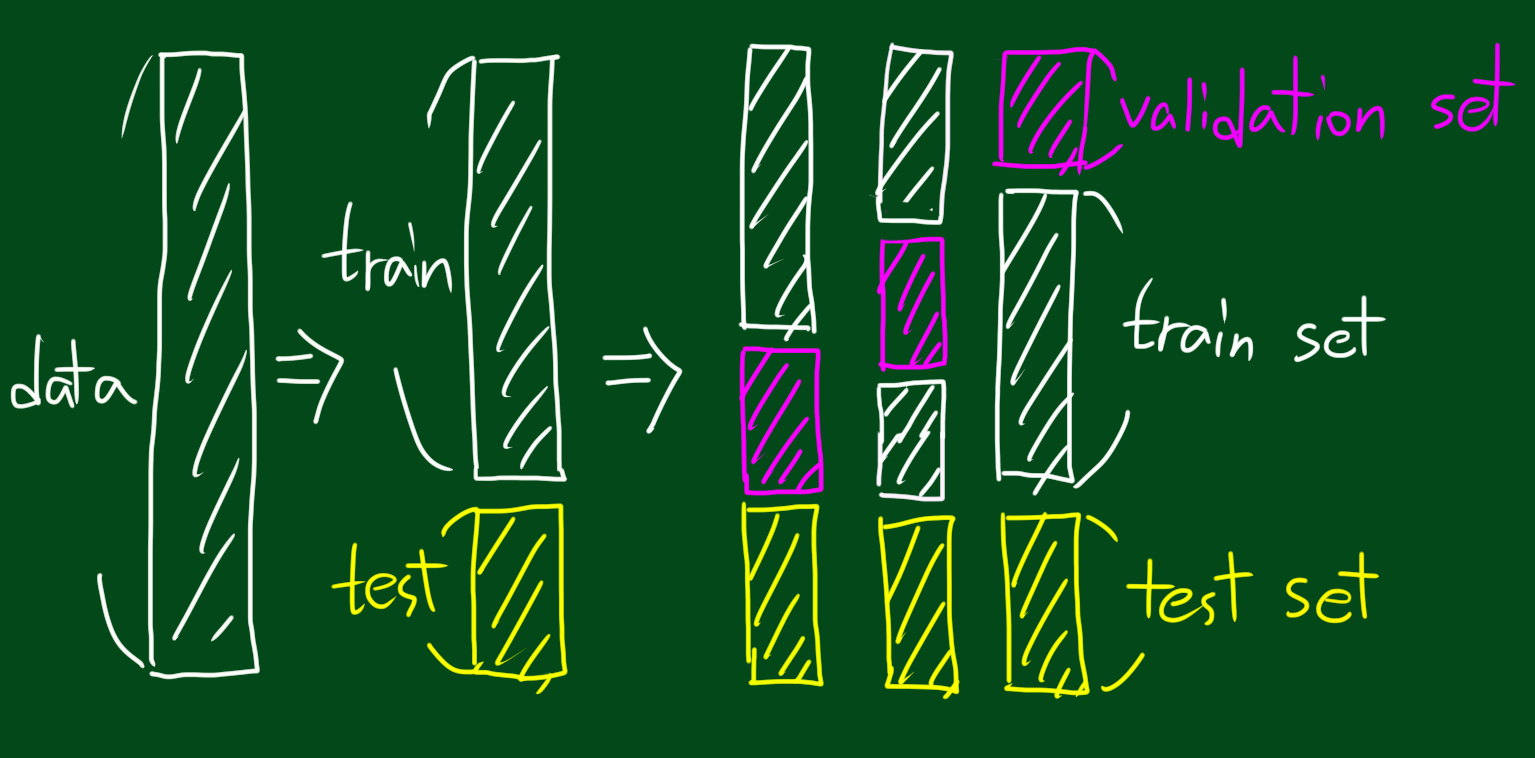 data
train
test
validation set
train set
test set